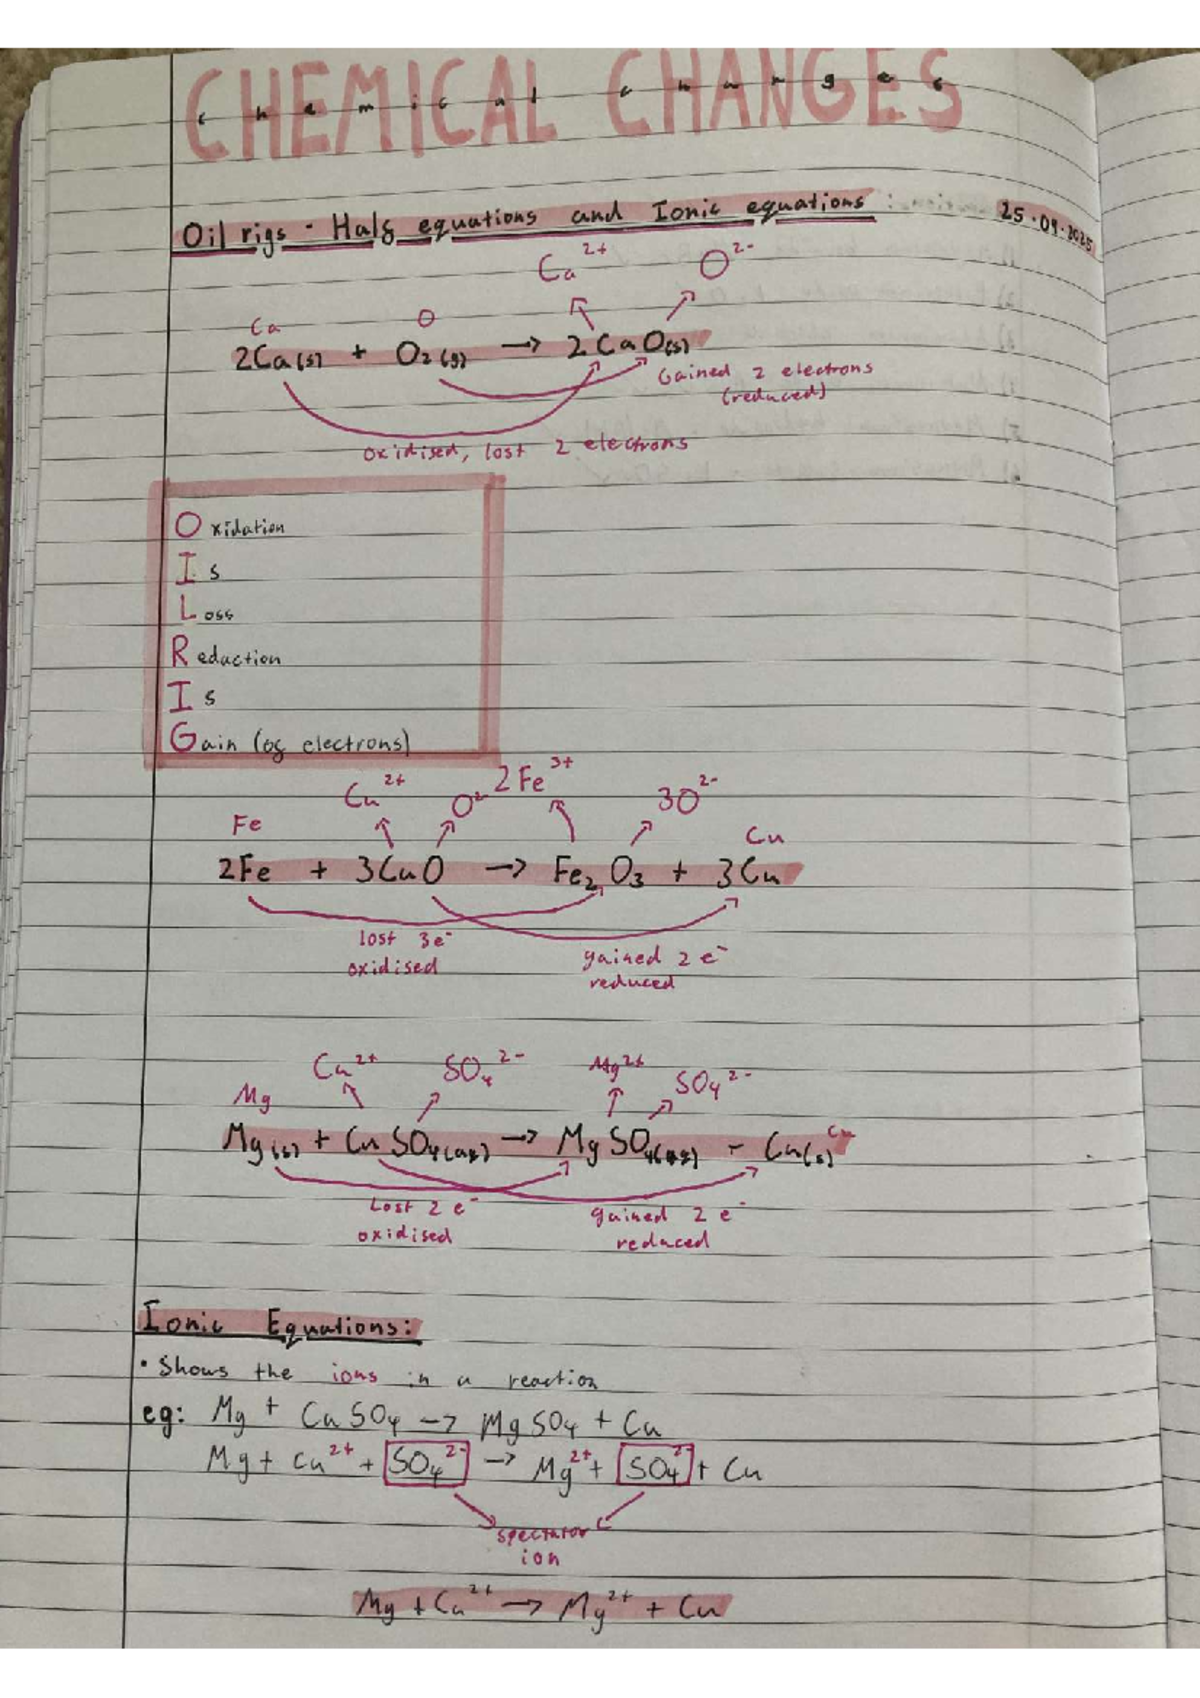 CHEMICAL CHANGES
chemical changes
Oil rigs - Half equations and Ionic equations:
25.09.2025
Ca²⁺ O²⁻
Ca O
2Ca(s) + O₂(g) → 2CaO(s)
Gained 2 electrons
(reduced)
oxidised, lost 2 electrons
Oxidation
Is
Loss
Reduction
Is
Gain (of electrons)
Cu²⁺ O²⁻ 2Fe³⁺ 3O²⁻
Fe Cu
2Fe + 3CuO → Fe₂O₃ + 3Cu
lost 3e⁻
oxidised
gained 2e⁻
reduced
Cu²⁺ SO₄²⁻ Mg²⁺ SO₄²⁻
Mg Cu
Mg(s) + CuSO₄(aq) → MgSO₄(aq) - Cu(s)
Lost 2e⁻
oxidised
gained 2e⁻
reduced
Ionic Equations:
• Shows the ions in a reaction
eg: Mg + CuSO₄ → MgSO₄ + Cu
Mg + Cu²⁺ + SO₄²⁻ → Mg²⁺ + SO₄²⁻ + Cu
spectator
ion
Mg + Cu²⁺ → Mg²⁺ + Cu